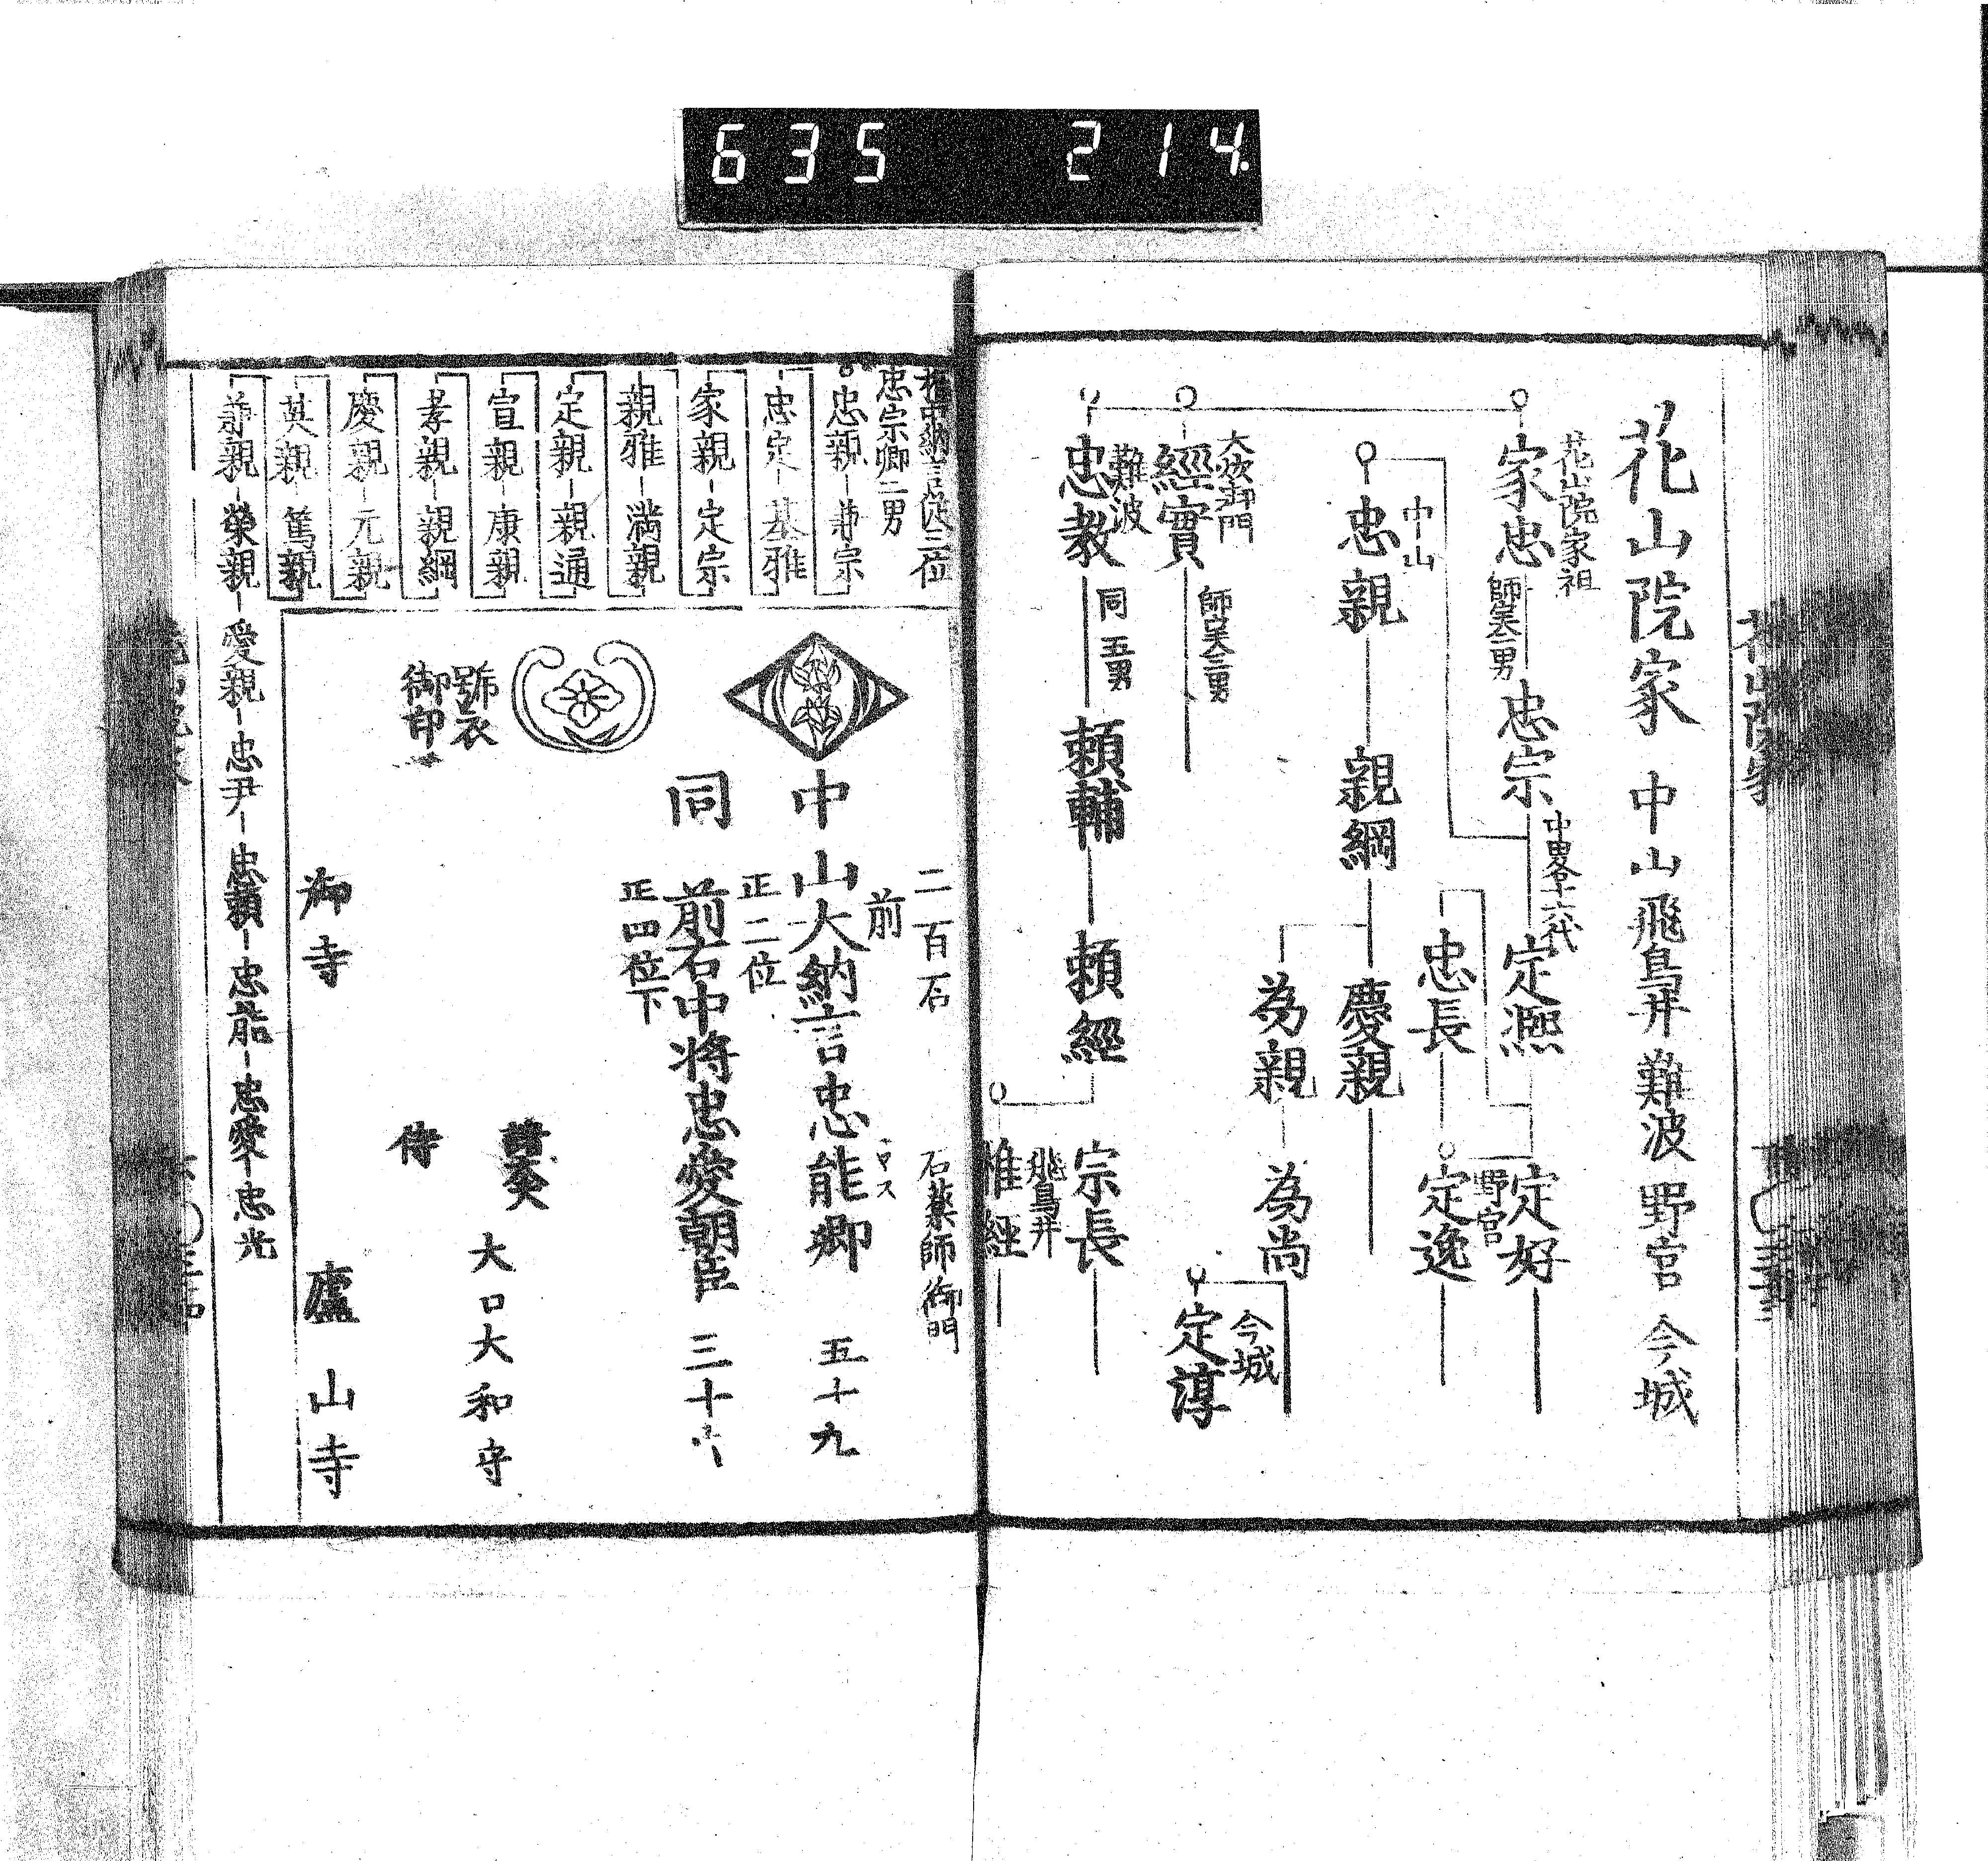 635 214
花山院家 中山 飛鳥井 難波 野宮 今城
花山院家祖
家忠
師実二男
忠宗
中畧十六代
定熈
定好
野宮
定逸
忠長
中山
忠親
親綱
慶親
為親
為尚
今城
定淳
大炊御門
經實
師実三男
難波
忠教
同五男
頼輔
頼經
宗長
飛鳥井
雅經
権中納言従三位
忠宗卿二男
忠親 兼宗
忠定 基雅
家親 定宗
親雅 満親
定親 親通
宣親 康親
孝親 親綱
慶親 元親
英親 篤親
兼親 榮親 愛親 忠尹 忠頼 忠能 忠愛 忠光
二百石
石薬師御門
前
中山大納言忠能卿 五十九
正二位
同 前右中将忠愛朝臣 三十
正四位下
號衣
御印
諸大夫
大口大和守
侍
御寺
廬山寺